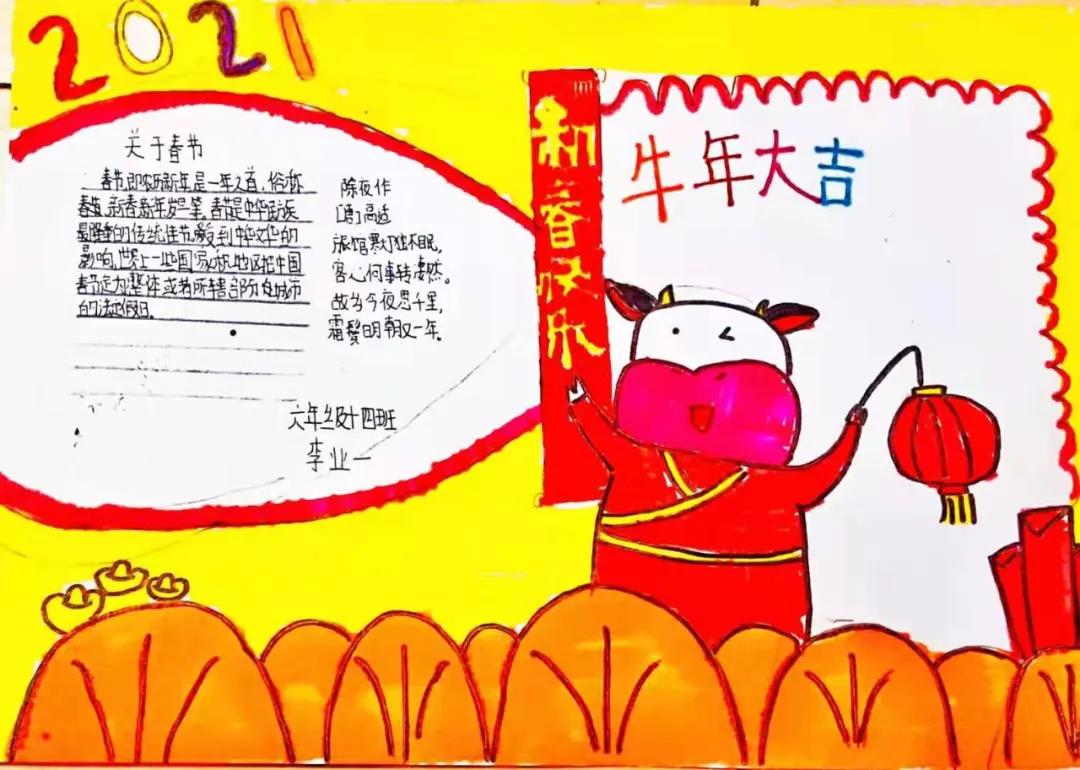 2021
关于春节
春节,即农历新年,是一年之首,俗称
春节、新春、新年岁等。春节是中华民族
最隆重的传统佳节。受到中华文华的
影响,世界上一些国家和地区把中国
春节定为整体或者所辖部分
的法定假日。
除夜作
[唐]高适
旅馆寒灯独不眠,
客心何事转凄然。
故乡今夜思千里,
霜鬓明朝又一年。
六年级十四班
李业一
新春快乐
牛年大吉